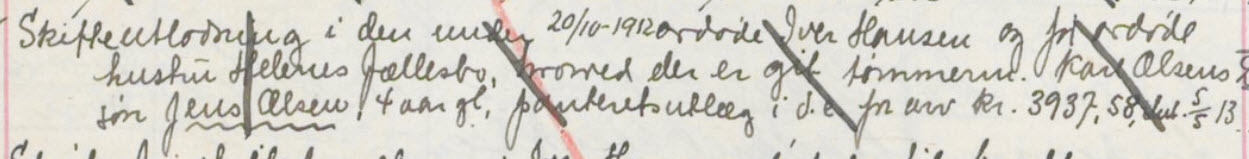 Skifteutlodning i den under 20/10-1912 avdøde Iver Hansen og før avdøde
hustru Helenes fællesbo, hvorved der er git tømmerm. Karl Olsens
søn Jens Olsen, 4 aar gl., panteretsutlæg i d.e. for arv kr. 3937,58, dat. 5/5 13.